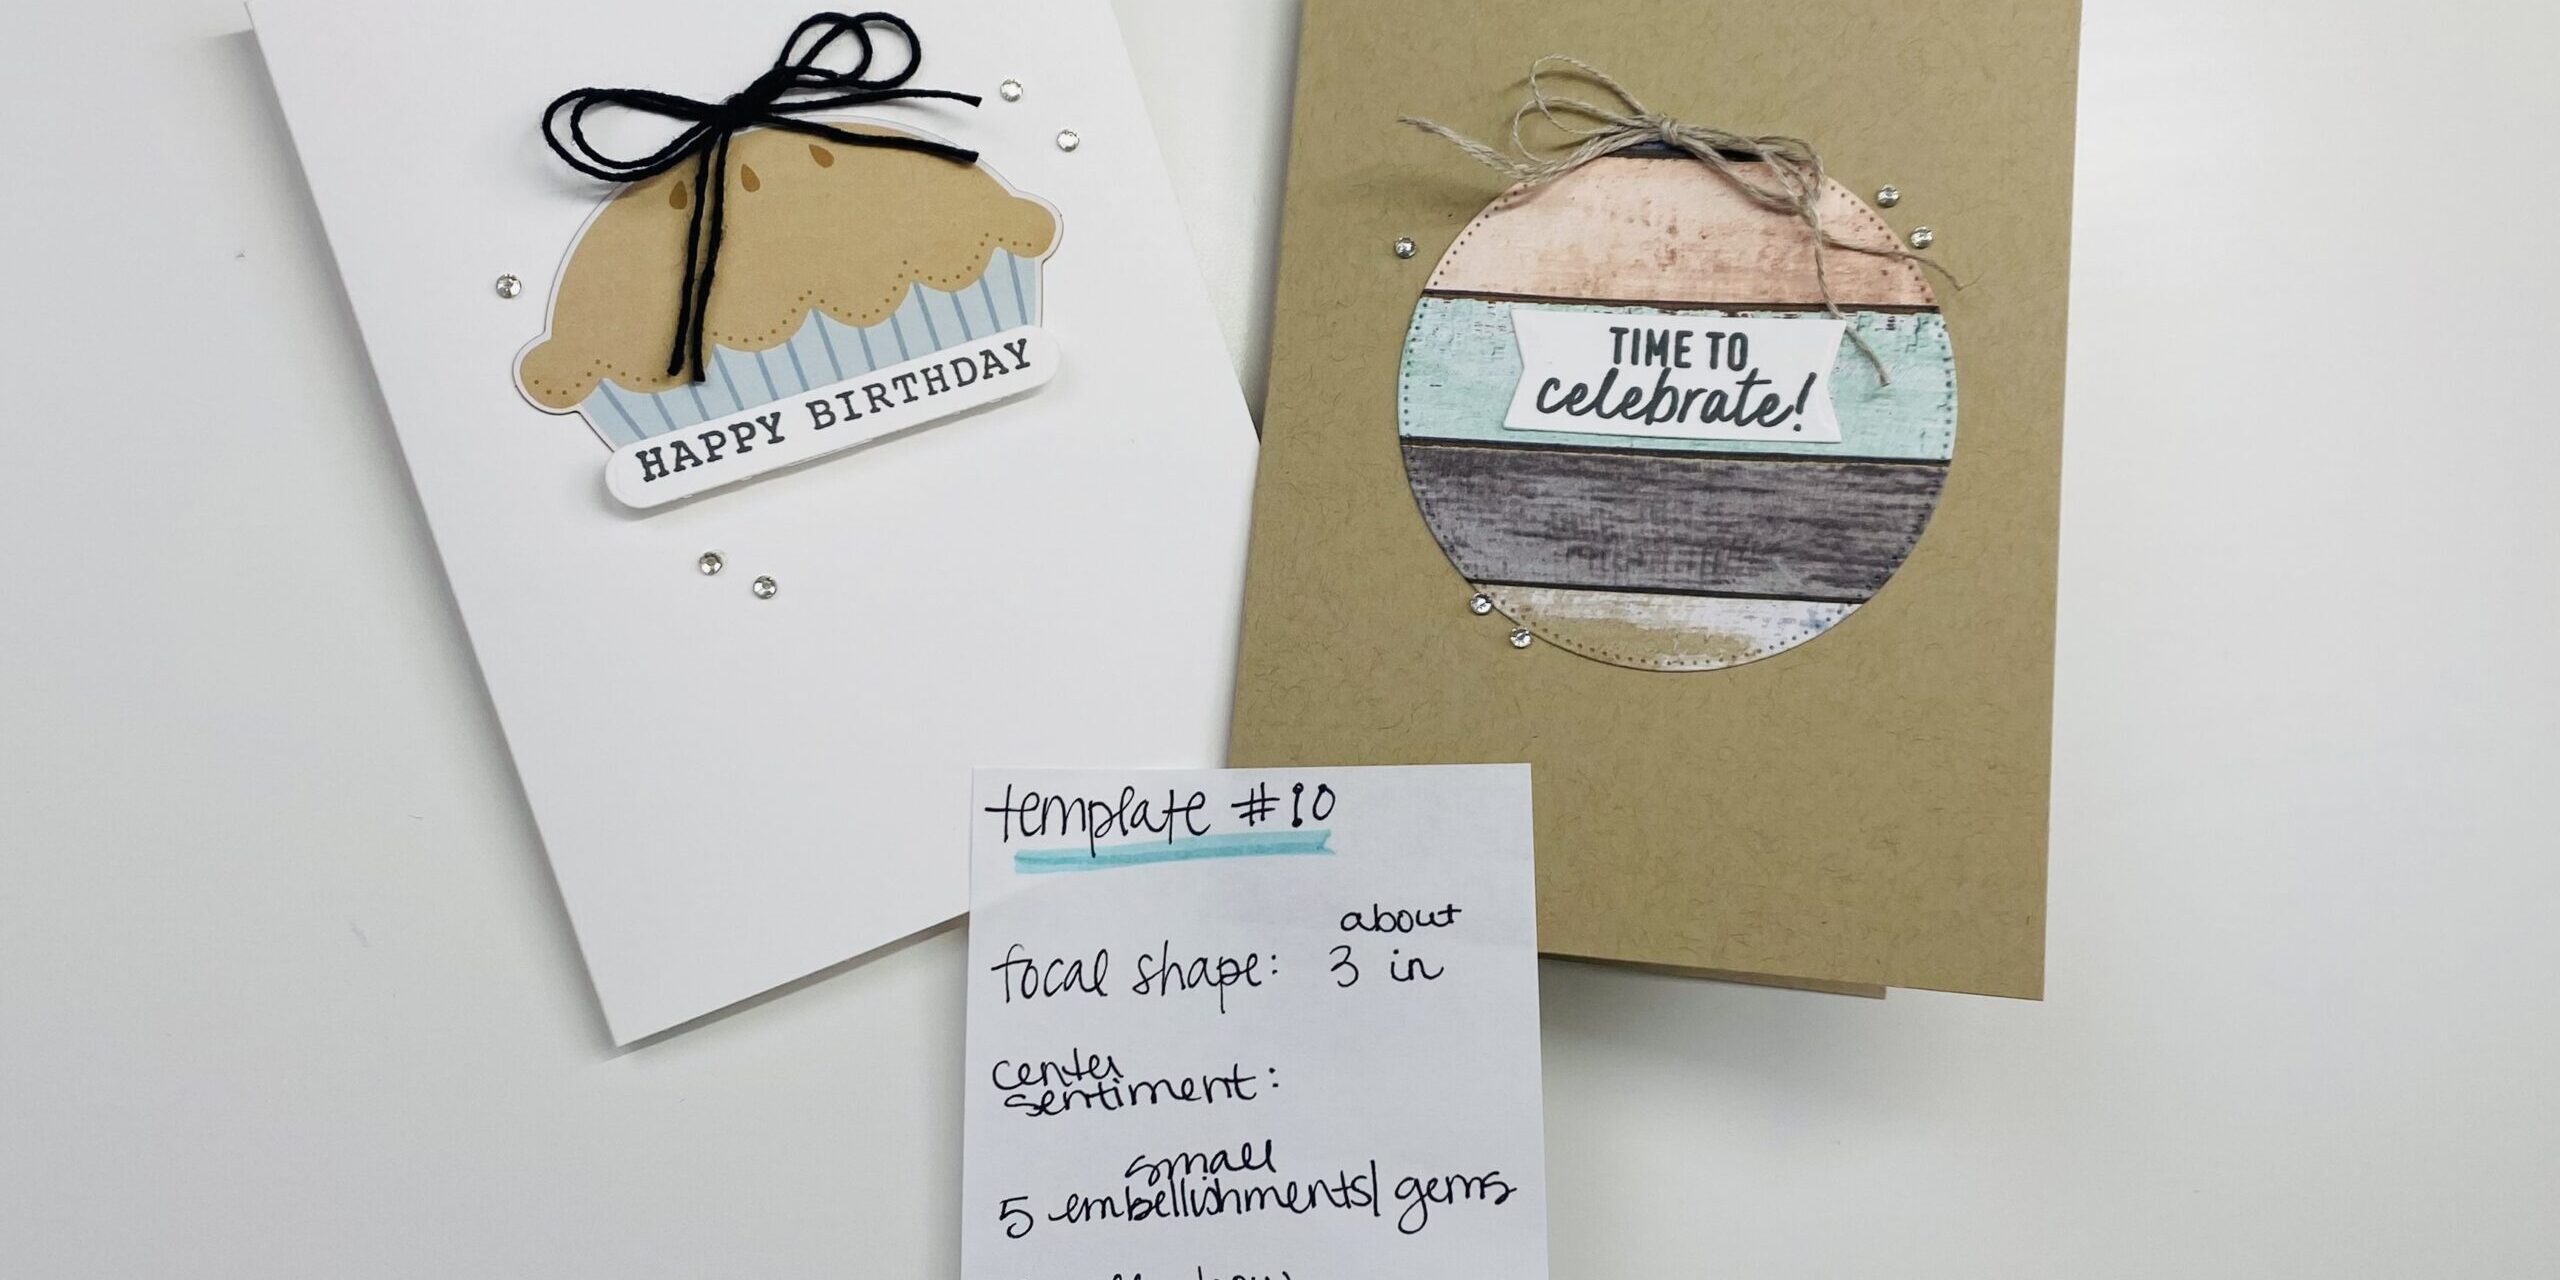 HAPPY BIRTHDAY
TIME TO
celebrate!
template #10
about
focal shape: 3 in
center
sentiment:
small
5 embellishments/ gems